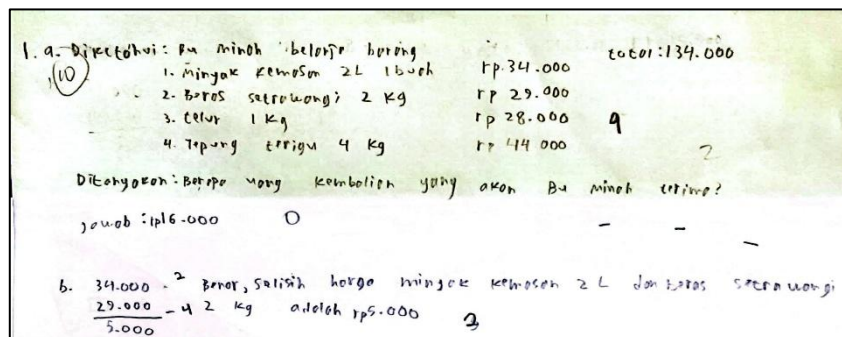 1. a. Diketahui: Bu minah belanja barang total: 134.000
10
1. Minyak kemasan 2L 1 buah rp.34.000
2. Beras setrawangi 2 kg rp 29.000
3. telur 1 kg rp 28.000 9
4. Tepung terigu 4 kg rp 44 000 2
Ditanyakan: Berapa uang kembalian yang akan Bu minah terima?
Jawab: rp16.000 0 - - -
b. 34.000 - 2 Benar, selisih harga minyak kemasan 2 L dan beras setrawangi
29.000 - 4 2 kg adalah rp5.000 3
5.000